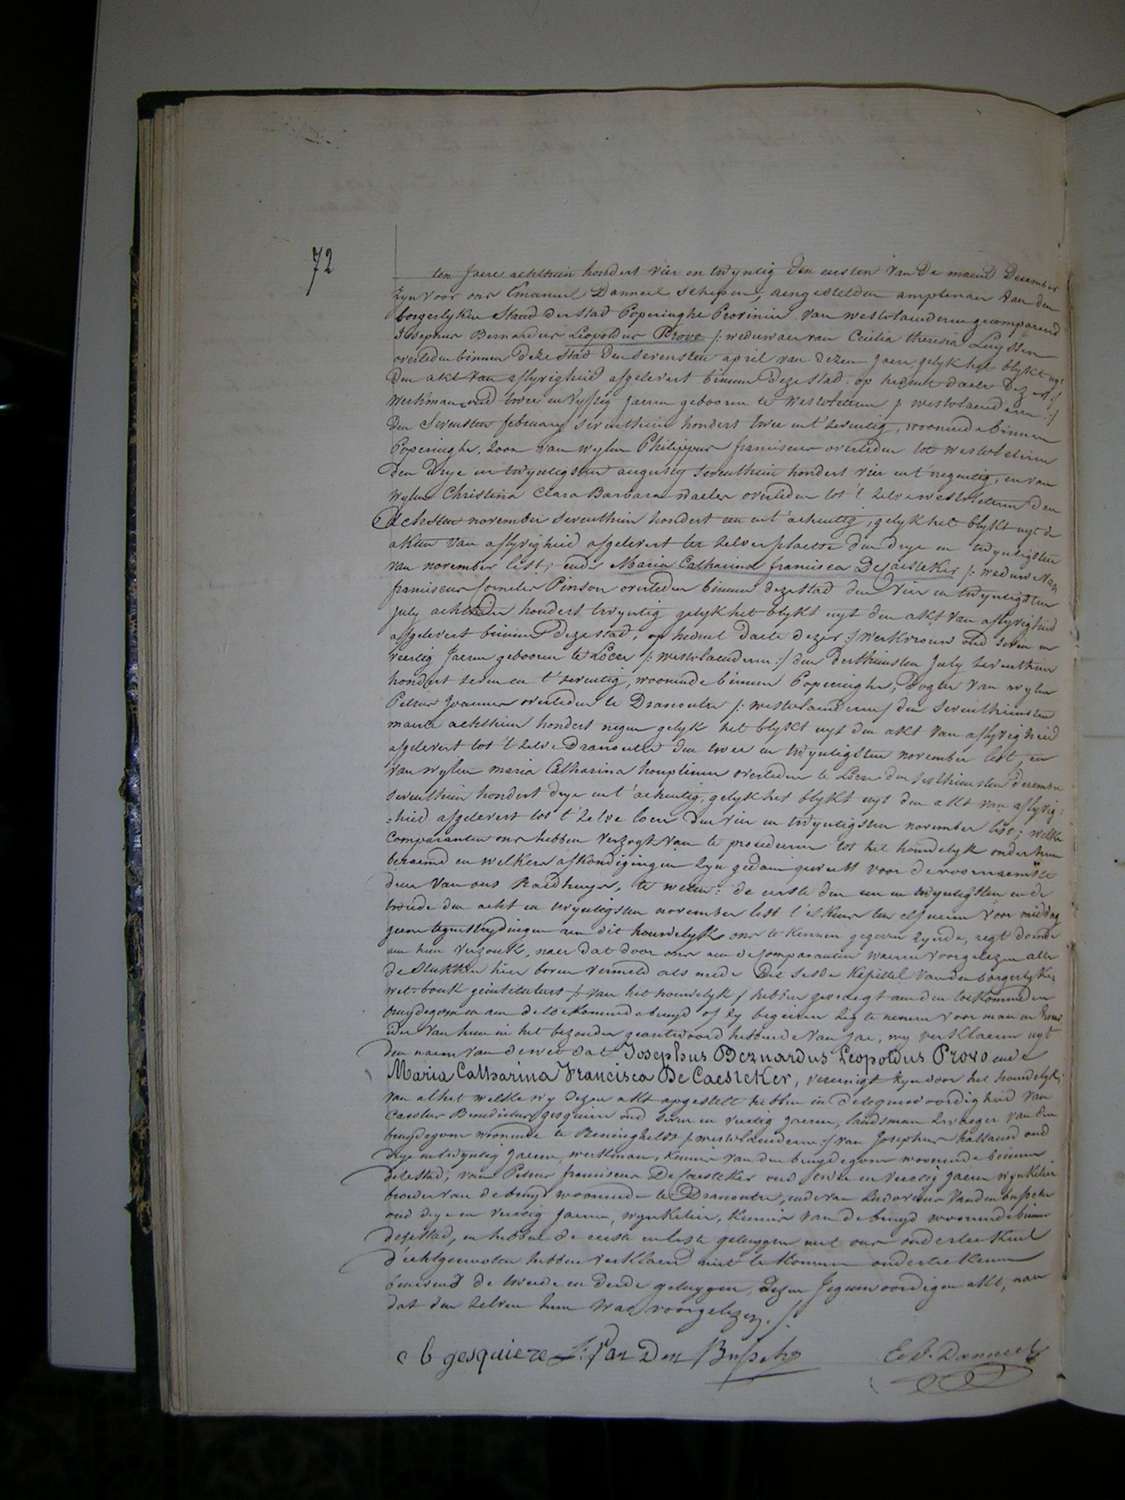 72
ten Jaere achthien hondert vier en twyntig den eersten van De maend December
zyn voor ons Emanuel Danneel schepen, aengestelden amptenaer van den
borgerlyken staed der stad Poperinghe Provincie van westvlaenderen gecompareerd
Josephus Bernardus Leopoldus Provo /: weduwaer van Cecilia theresia
overleden binnen deze stad den sevensten april van dezen jaere gelyk het blykt uyt
den akt van aflyvigheid afgelevert binnen deze stad op hedent daete dezer :/
werkman oud twee en vyftig jaeren gebooren te westvleteren /: westvlaenderen :/
den sevensten february seventhien hondert twee en t'seventig, woonende binnen
Poperinghe, zoon van wylen Philippus franciscus overleden tot westvleteren
den drye en twyntigsten augusty seventhien hondert vier en t negentig, en van
wylen Christina Clara Barbara overleden tot 't zelve westvleteren den
achsten november seventhien hondert een en t'achentig, gelyk het blykt uyt de
akten van aflyvigheid afgelevert ter zelver plaetse den drye en twyntigsten
van november lest; ende Maria Catharina francisca De Caesteker /: weduwe van
franciscus Cornelis Pinson overleden binnen deze stad den vier en twyntigsten
july achthien hondert twyntig gelyk het blykt uyt den akt van aflyvigheid
afgelevert binnen deze stad, op hedent daete dezer :/ werkvrouw oud seven en
veertig jaeren gebooren te Locer /: westvlaenderen :/ den derthiensten july seventhien
hondert seven en t'seventig, woonende binnen Poperinghe, Dogter van wylen
Petrus Joannes overleden te Dranouter /: westvlaenderen / den seventhiensten
maerte achthien hondert negen gelyk het blykt uyt den akt van aflyvigheid
afgelevert tot 't zelve Dranouter den twee en twyntigsten november lest, en
van wylen maria Catharina houplinne overleden te Locer den sesthiensten december
seventhien hondert drye en t'achentig, gelyk het blykt uyt den akt van aflyvig-
heid afgelevert tot 't zelve locer den vier en twyntigsten november lest; welke
comparanten ons hebben verzogt van te procederen tot het houwelyk onder hun
beraemd en welkers afkondigingen zyn gedaen geweest voor de voornaemste
deur van ons Raedhuys, te weten: de eerste den een en twyntigsten en de
tweede den acht en twyntigsten november lest t'elkens ten elf uren voor middag
geene tegenstrydigen aen dit houwelyk ons te kennen gegeven zynde, regt doende
aen hun verzoek, naer dat door ons aen de comparanten waeren voorgelezen alle
de stukken hier boven vermeld als mede het seste kapittel van den borgerlyken
wet-bouk geintituleert /: van het houwelyk / hebben gevraegt aen den toekomenden
bruydegom en aen de toekomende bruyd of zy begeiren zig te nemen voor man en vrouw
ider van hun in het bezonder geantwoord hebbende van jae, wy verklaeren uyt
den naem van de wet dat Josephus Bernardus Leopoldus Provo ende
Maria Catharina Francisca De Caesteker, vereenigt zyn door het houwelyk,
van al het welke wy dezen akt opgestelt hebben in de tegenwoordigheid van
Carolus Benedictus gesquiere oud en veertig jaeren, landsman zwaeger van den
bruydegom woonende te Reninghelst /: westvlaenderen :/ van Josephus oud
drye en twyntig jaeren, werkman, kennis van den bruydegom woonende binnen
deze stad, van Petrus franciscus De Caesteker oud en veertig jaeren wynkelier
broeder van de bruyd woonende te Dranouter, ende van Ludovicus Vanden Bussche
oud drye en veertig jaeren, wynkelier, kennis van de bruyd woonende binnen
deze stad, en hebben de eerste en leste getuygen met ons onderteekent
d'echtgenooten hebben verklaerd niet te konnen onderteekenen
benevens de tweede en derde getuygen, dezen jegenwoordigen akt, naer
dat den zelven hun was voorgelezen ./.
c b gesquiere L: Van Den Bussche E. J. Danneel